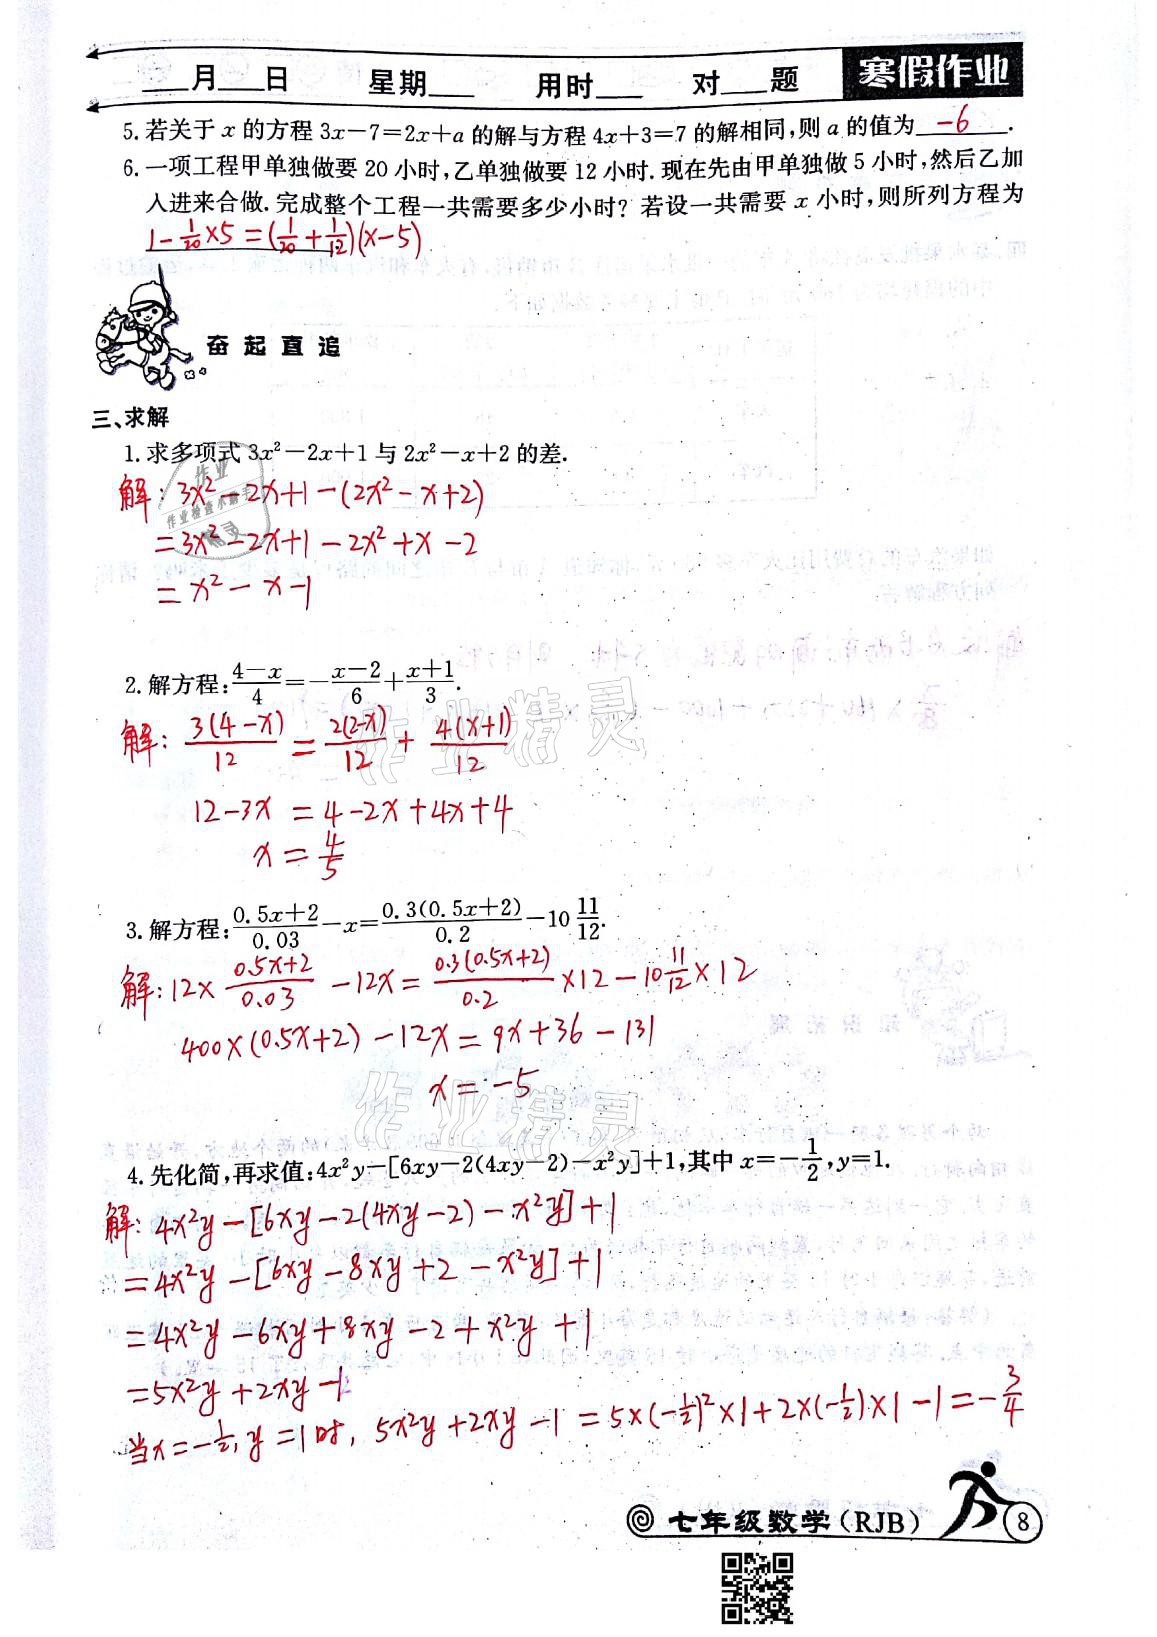 ___月___日 星期___ 用时___ 对___题 寒假作业
5. 若关于 x 的方程 3x-7=2x+a 的解与方程 4x+3=7 的解相同,则 a 的值为 -6 .
6. 一项工程甲单独做要 20 小时,乙单独做要 12 小时. 现在先由甲单独做 5 小时,然后乙加
入进来合做. 完成整个工程一共需要多少小时? 若设一共需要 x 小时,则所列方程为
1-1/20×5=(1/20+1/12)(x-5)
奋起直追
三、求解
1. 求多项式 3x²-2x+1 与 2x²-x+2 的差.
解: 3x²-2x+1-(2x²-x+2)
=3x²-2x+1-2x²+x-2
=x²-x-1
2. 解方程: (4-x)/4=-(x-2)/6+(x+1)/3.
解: 3(4-x)/12=2(2-x)/12+4(x+1)/12
12-3x=4-2x+4x+4
x=4/5
3. 解方程: (0.5x+2)/0.03-x=0.3(0.5x+2)/0.2-10 11/12.
解: 12×(0.5x+2)/0.03-12x=0.3(0.5x+2)/0.2×12-10 11/12×12
400×(0.5x+2)-12x=9x+36-131
x=-5
4. 先化简,再求值:4x²y-[6xy-2(4xy-2)-x²y]+1,其中 x=-1/2,y=1.
解: 4x²y-[6xy-2(4xy-2)-x²y]+1
=4x²y-[6xy-8xy+2-x²y]+1
=4x²y-6xy+8xy-2+x²y+1
=5x²y+2xy-1
当x=-1/2,y=1时, 5x²y+2xy-1=5×(-1/2)²×1+2×(-1/2)×1-1=-3/4
七年级数学(RJB) 8
作业
作业检查小助手
精灵
作业精灵
作业精灵